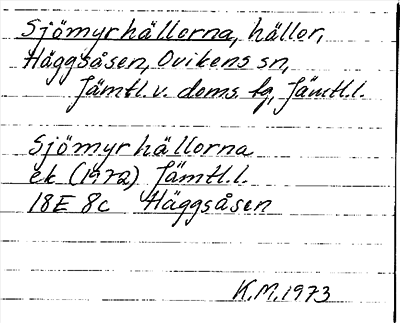 Sjömyrhällorna, hällor,
Häggsåsen, Ovikens sn,
Jämtl.v. doms fg, Jämtl.l.
Sjömyrhällorna
ek (1972) Jämtl.l.
18E 8c Häggsåsen
K.M.1973